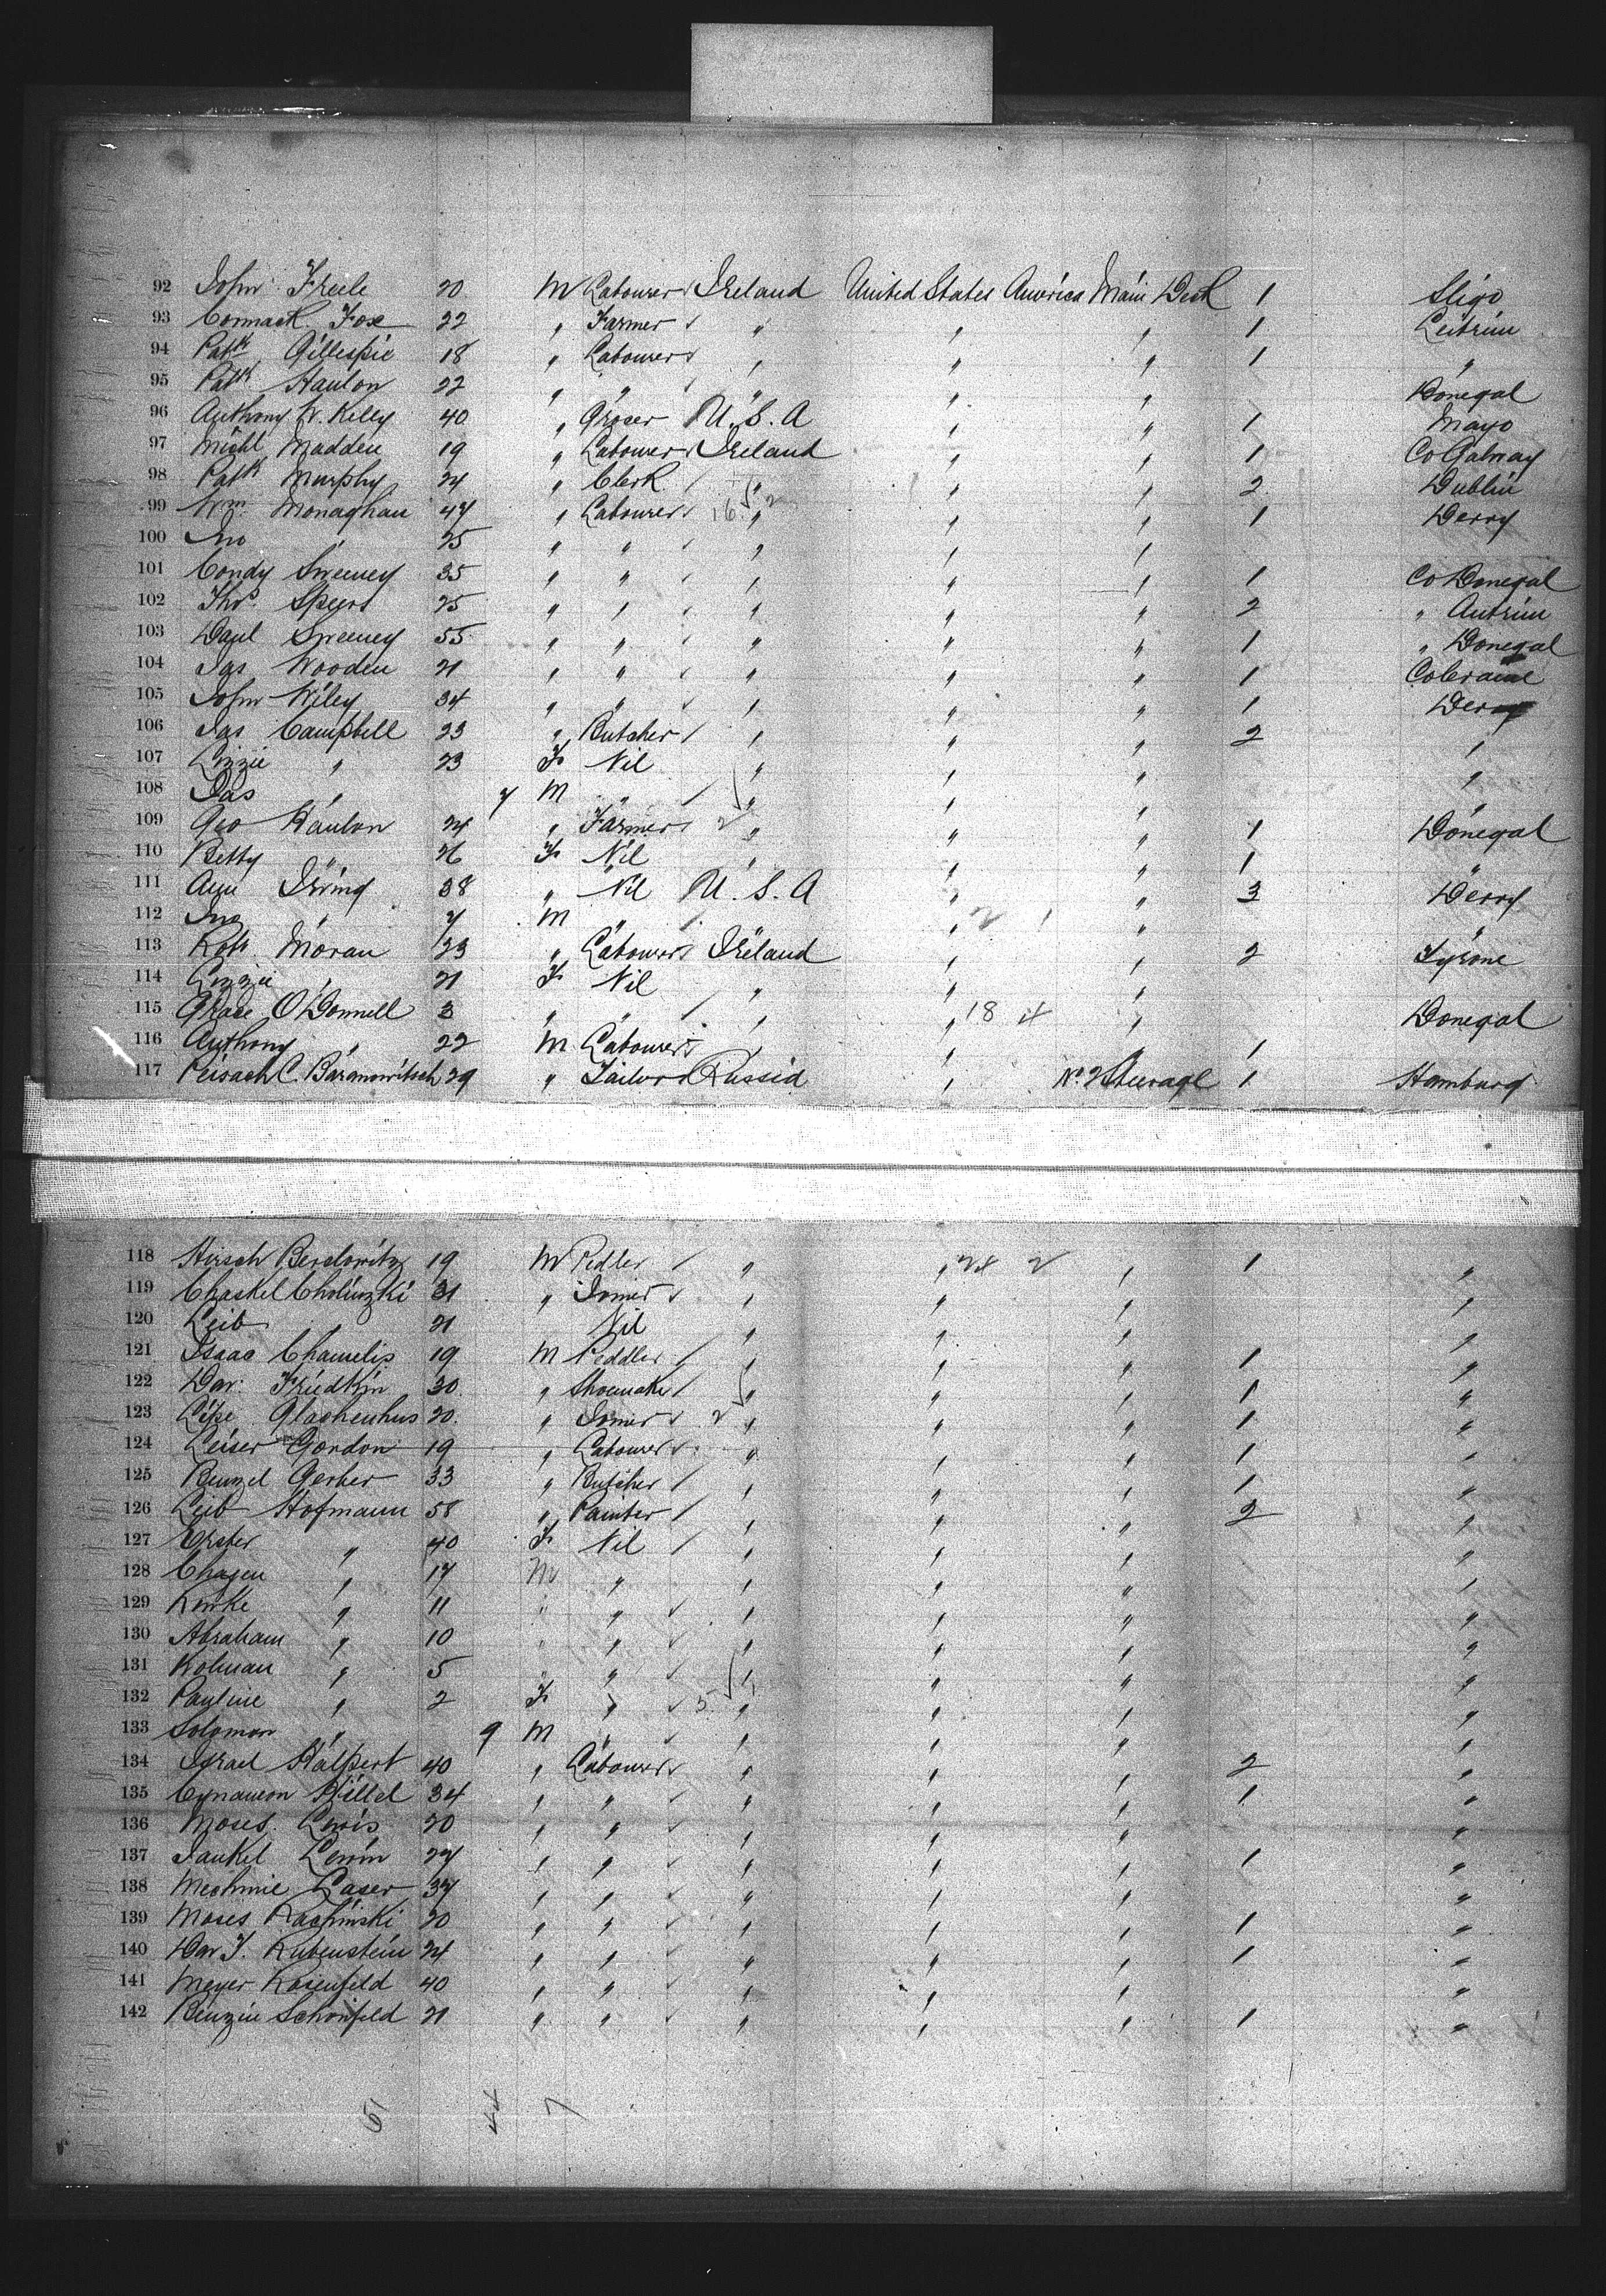 92 John Freele 20 M Labourer Ireland United States America Main Deck 1 Sligo
93 Cormack Fox 22 " Farmer " " " 1 Leitrim
94 Patk Gillespie 18 " Labourer " " " 1 "
95 Patk Hanlon 22 " " " " " Donegal
96 Anthony W. Kelly 40 " Grocer U.S.A " " 1 Mayo
97 Michl Madden 19 " Labourer Ireland " " 1 Co Galway
98 Patk Murphy 24 " Clerk " " " 2 Dublin
99 Wm Monaghan 47 " Labourer 16 2 " " " 1 Derry
100 Jno " 25 " " " " "
101 Condy Sweeney 35 " " " " " 1 Co Donegal
102 Thos. Speers 25 " " " " " 2 " Antrim
103 Danl Sweeney 55 " " " " " 1 " Donegal
104 Jas Wooden 21 " " " " " 1 Coleraine
105 John Wiley 34 " " " " " 1 Derry
106 Jas Campbell 23 " Butcher " " " 2 "
107 Lizzie " 23 F Nil " " " "
108 Jas " 7 M " " " " "
109 Geo Hanlon 24 " Farmer 2 " " " 1 Donegal
110 Betty " 26 F Nil " " " 1 "
111 Ann Irving 38 " Nil U.S.A " " 3 Derry
112 Jno " 7 M " " " 2 1 " "
113 Robt Moran 23 " Labourer Ireland " " 2 Tyrone
114 Lizzie " 21 F Nil " " "
115 Grace O'Donnell 3 " " " " 18 4 " Donegal
116 Anthony " 22 M Labourer " " " 1
117 Peisach C. Baranowitsch 29 " Tailor Russia " No. 2 Steerage 1 Hamburg
118 Hirsch Berelowitz 19 M Pedler " " 24 2 " 1 "
119 Chaskel Cholinzki 31 " Joiner " " " "
120 Leib " 21 Nil " " " "
121 Isaac Chamelis 19 M Peddler " " " 1 "
122 Dav. Friedkin 30 " Shoemaker " " " 1 "
123 Lipe Glachenhus 20 " Joiner 2 " " " 1 "
124 Leiser Gordon 19 " Labourer " " " 1 "
125 Benzel Gerber 33 " Butcher " " " 1 "
126 Leib Hofmann 58 " Painter " " " 2 "
127 Ester " 40 F Nil " " " "
128 Chagen " 17 M " " " " "
129 Rewke " 11 " " " " " "
130 Abraham " 10 " " " " " "
131 Kolman " 5 " " " " " "
132 Pauline " 2 F " 5 " " " "
133 Solomon " 9 M " " " " "
134 Israel Halpert 40 " Labourer " " " 2 "
135 Cynameon Hillel 34 " " " " " 1 "
136 Moses Lewis 20 " " " " " "
137 Jankel Lewin 27 " " " " " 1 "
138 Mechinie Laser 37 " " " " " "
139 Moses Rachinski 20 " " " " " 1 "
140 Dav J. Rubenstein 24 " " " " " 1 "
141 Meyer Rosenfeld 40 " " " " " "
142 Benzin Schonfeld 21 " " " " " 1 "
51 44 7